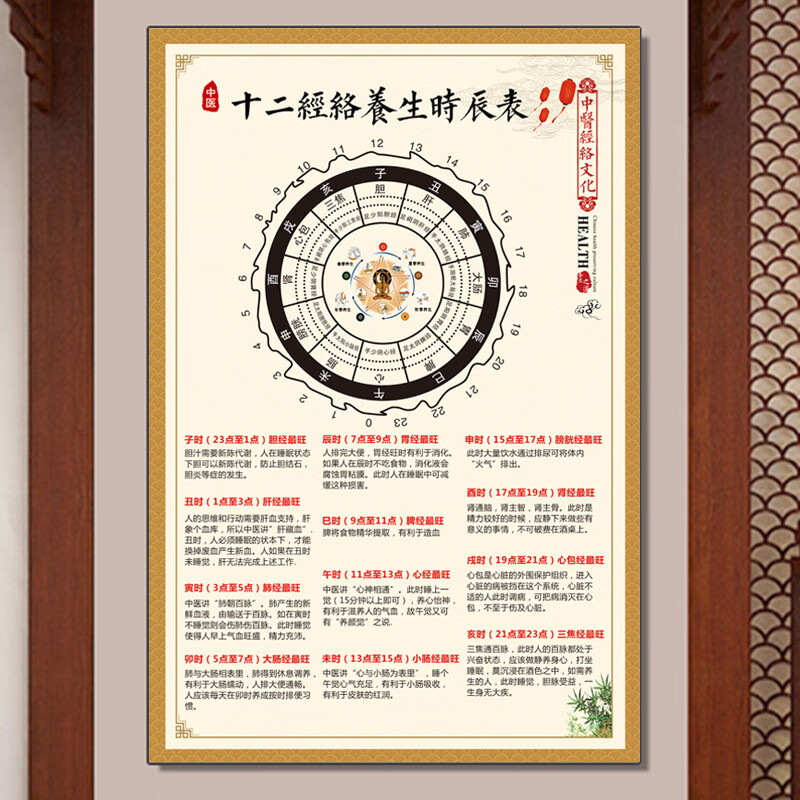 中医
十二經絡養生時辰表
中醫經絡文化
HEALTH
Chinese health preserving culture
12
13
14
15
16
17
18
19
20
21
22
23
0
1
2
3
4
5
6
7
8
9
10
11
子
丑
寅
卯
辰
巳
午
未
申
酉
戌
亥
胆
肝
肺
大肠
胃
脾
心
小肠
膀胱
肾
心包
三焦
足少阳胆经
足厥阴肝经
手太阴肺经
手阳明大肠经
足阳明胃经
足太阴脾经
手少阴心经
手太阳小肠经
足太阳膀胱经
足少阴肾经
手厥阴心包经
手少阳三焦经
春季养生
夏季养生
秋季养生
子时（23点至1点）胆经最旺
胆汁需要新陈代谢，人在睡眠状态
下胆可以新陈代谢，防止胆结石，
胆炎等症的发生。
丑时（1点至3点）肝经最旺
人的思维和行动需要肝血支持，肝
象个血库，所以中医讲“肝藏血”.
丑时，人必须睡眠的状本下，才能
换掉废血产生新血。人如果在丑时
未睡觉，肝无法完成上述工作.
寅时（3点至5点）肺经最旺
中医讲“肺朝百脉”。肺产生的新
鲜血液，由输送于百脉。如在寅时
不睡觉则会伤肺伤百脉。此时睡觉
使得人早上气血旺盛，精力充沛。
卯时（5点至7点）大肠经最旺
肺与大肠相表里，肺得到休息调养，
有利于大肠蠕动，人排大便通畅。
人应该每天在卯时养成按时排便习
惯。
辰时（7点至9点）胃经最旺
人排完大便，胃经旺时有利于消化。
如果人在辰时不吃食物，消化液会
腐蚀胃粘膜。此时人在睡眠中可减
缓这种损害。
巳时（9点至11点）脾经最旺
脾将食物精华提取，有利于造血
午时（11点至13点）心经最旺
中医讲“心神相通”。此时睡上一
觉（15分钟以上即可），养心怡神，
有利于滋养人的气血，故午觉又可
有“养颜觉”之说.
未时（13点至15点）小肠经最旺
中医讲“心与小肠为表里”，睡个
午觉心气充足，有利于小肠吸收，
有利于皮肤的红润。
申时（15点至17点）膀胱经最旺
此时大量饮水通过排尿可将体内
“火气”排出。
酉时（17点至19点）肾经最旺
肾通脑，肾主智，肾主骨。此时是
精力较好的时候，应静下来做些有
意义的事情，不可破费在酒桌上。
戌时（19点至21点）心包经最旺
心包是心脏的外围保护组织，进入
心脏的病被挡在这个系统，心脏不
适的人此时调病，可把病消灭在心
包，不至于伤及心脏。
亥时（21点至23点）三焦经最旺
三焦通百脉，此时人的百脉都处于
兴奋状态，应该做静养身心，打坐
睡眠，莫沉浸在酒色之中，如需养
生的人，此时睡觉，胆脉受益，一
生身无大疾。